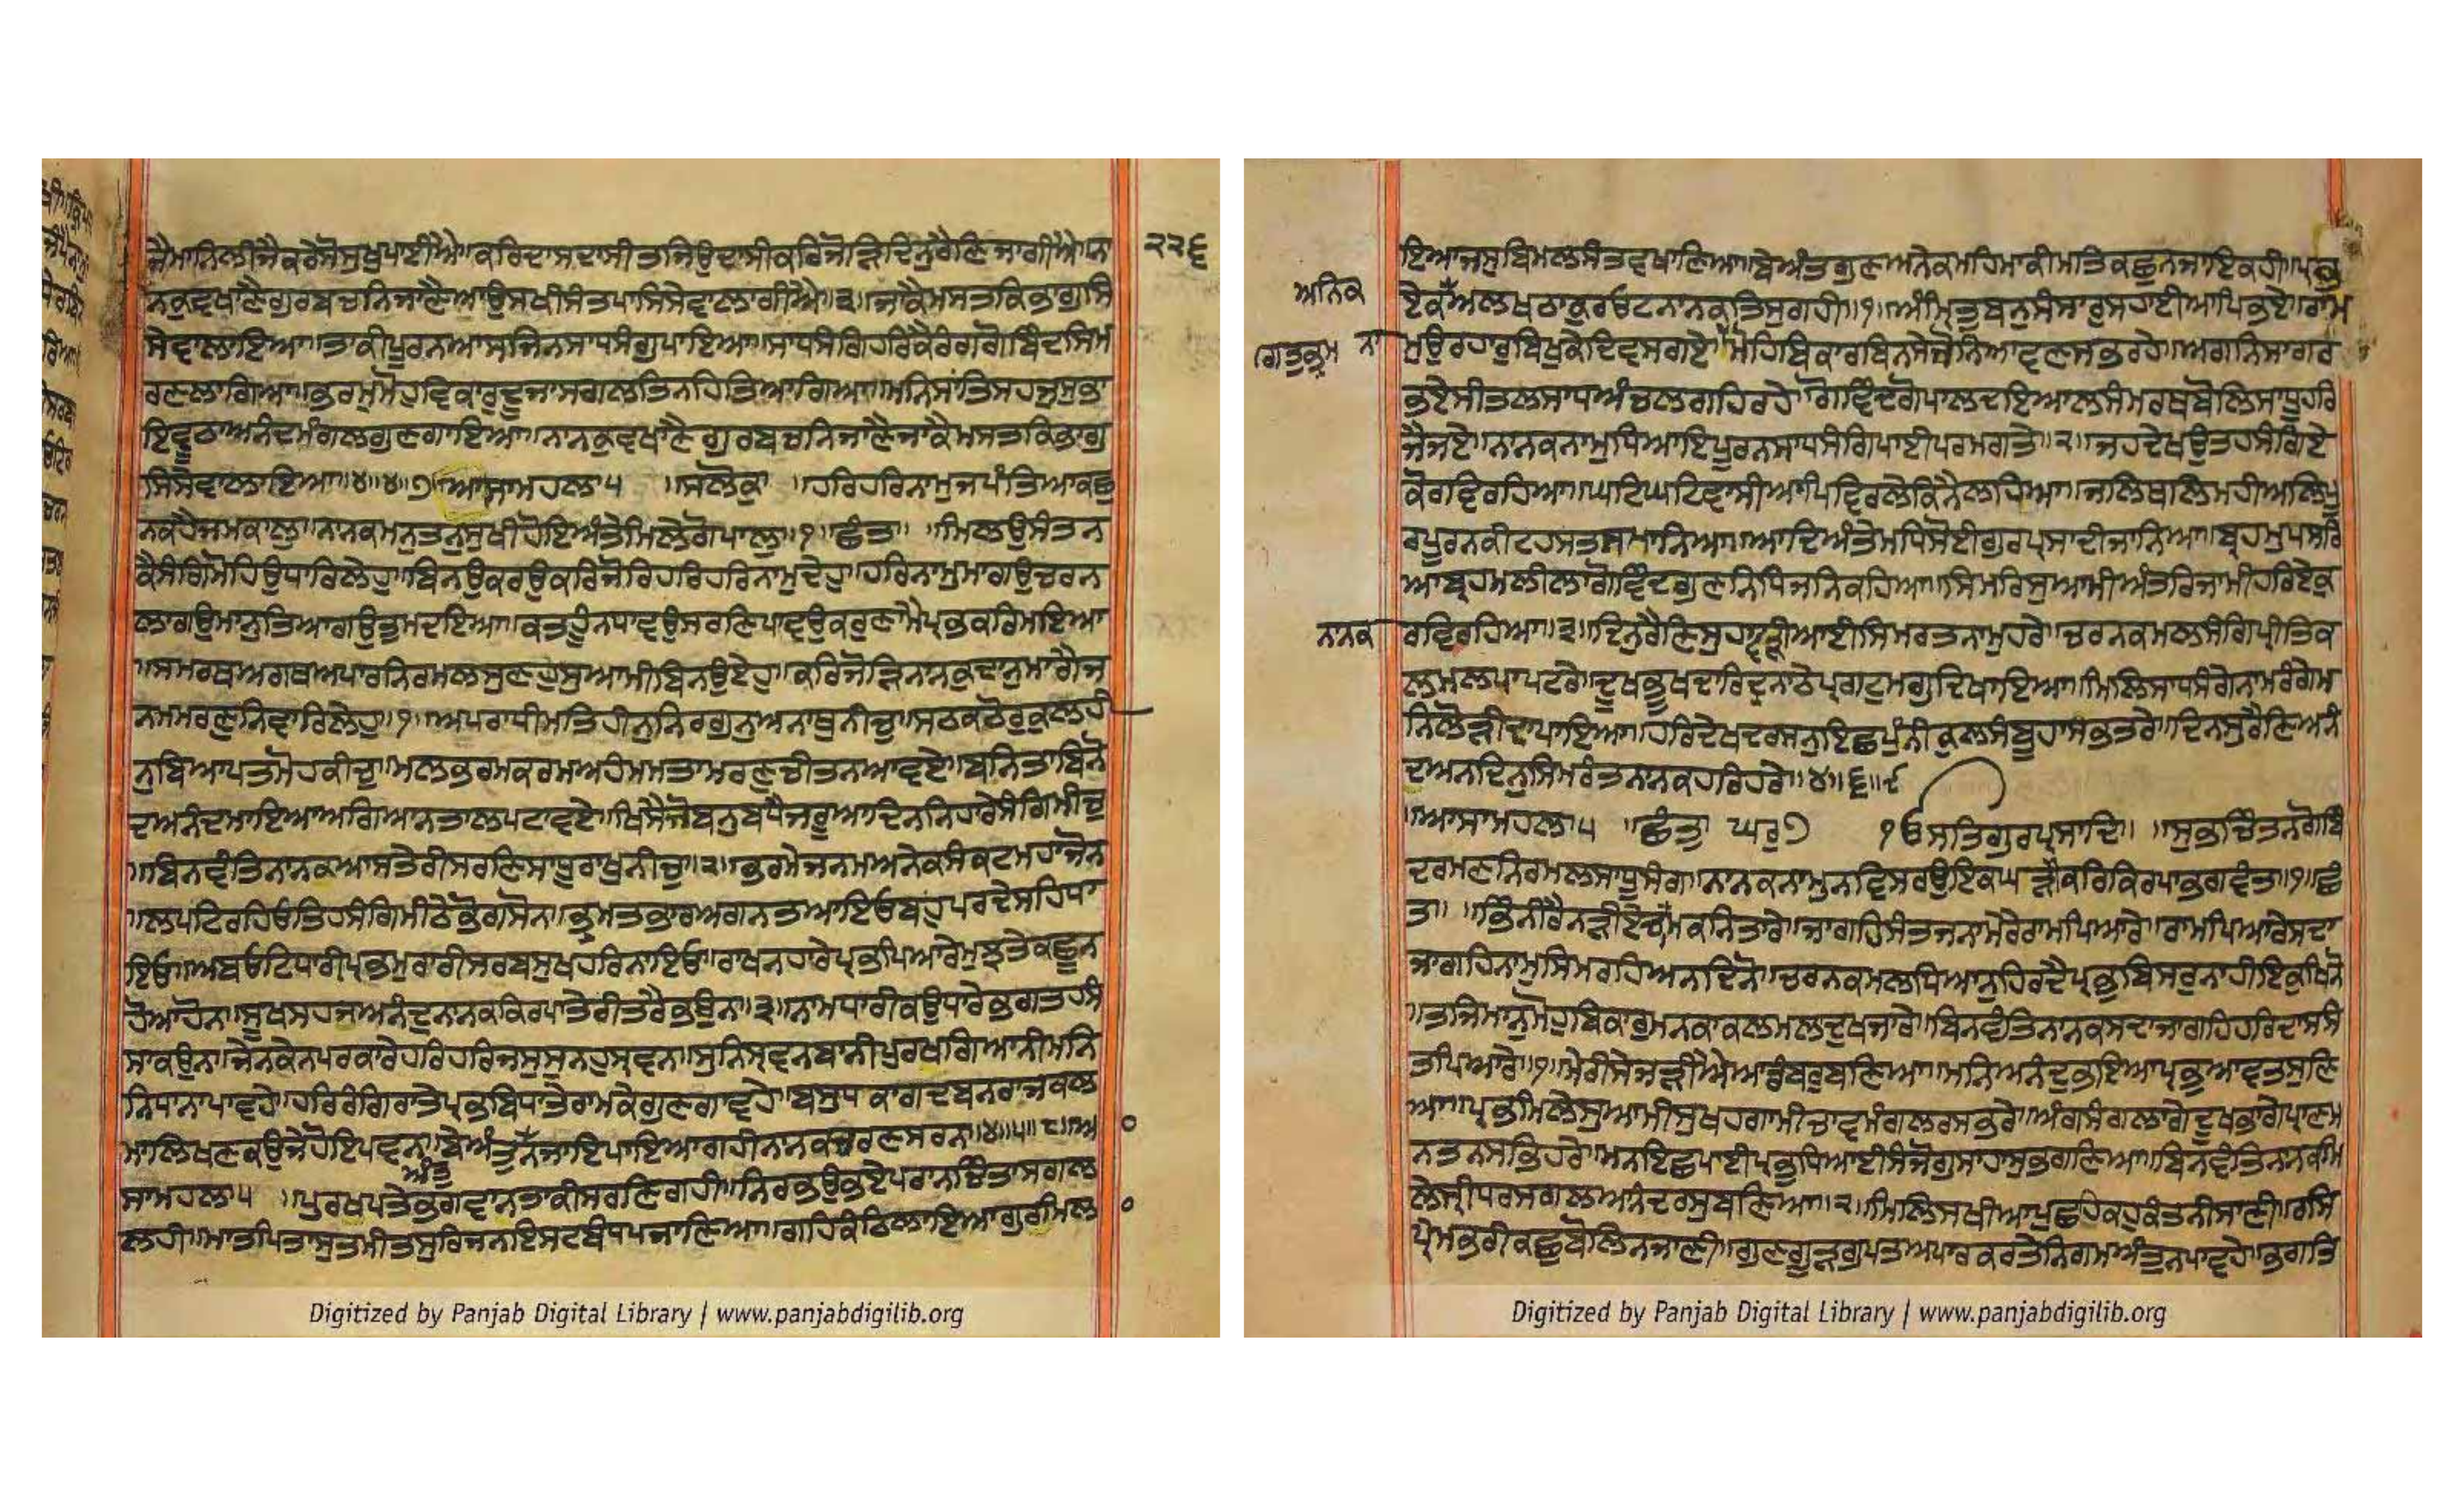 ਜੈਮਾਨਿਲੀਜੈਕਰੇਸੋਸੁਖੁਪਾਈਐ॥ਕਰਿਦਾਸਦਾਸੀਤਜਿਉਦਾਸੀਕਰਿਜੋੜਿਦਿਨੁਰੈਣਿਜਾਗੀਐ॥ਨਾ
੨੨੬
ਨਕੁਵਖਾਣੈਗੁਰਬਚਨਿਜਾਣੈਆਉਸਖੀਸੰਤਪਾਸਿਸੇਵਾਲਾਗੀਐ॥੩॥ਜਾਕੈਮਸਤਕਿਭਾਗੁਸਿ
ਸੇਵਾਲਾਇਆ॥ਤਾਕੀਪੂਰਨਆਸਜਿਨਸਾਧਸੰਗੁਪਾਇਆ॥ਸਾਧਸੰਗਿਹਰਿਕੈਰੰਗਗੋਬਿੰਦਸਿਮ
ਰਣਲਾਗਿਆ॥ਭਰਮੁਮੋਹਵਿਕਾਰੁਦੂਜਾਸਗਲਤਿਨਹਿਤਿਆਗਿਆ॥ਮਨਿਸਾਂਤਿਸਹਜੁਸੁਭਾ
ਇਵੂਠਾਅਨੰਦਮੰਗਲਗੁਣਗਾਇਆ॥ਨਾਨਕੁਵਖਾਣੈਗੁਰਬਚਨਿਜਾਣੈਜਾਕੈਮਸਤਕਿਭਾਗੁ
ਸਿਸੇਵਾਲਾਇਆ॥੪॥੪॥੭॥ਆਸਾਮਹਲਾ੫ ॥ਸਲੋਕੁ॥ ਹਰਿਹਰਿਨਾਮੁਜਪੰਤਿਆਕਛੁ
ਨਕਹੈਜਮਕਾਲੁ॥ਨਾਨਕਮਨੁਤਨੁਸੁਖੀਹੋਇਅੰਤੇਮਿਲੈਗੋਪਾਲੁ॥੧॥ਛੰਤ॥ ॥ਮਿਲਉਸੰਤਨ
ਕੈਸੰਗਿਮੋਹਿਉਧਾਰਿਲੇਹੁ॥ਬਿਨਉਕਰਉਕਰਿਜੋਰਿਹਰਿਹਰਿਨਾਮੁਦੇਹੁ॥ਹਰਿਨਾਮੁਮਾਗਉਚਰਨ
ਲਾਗਉਮਾਨੁਤਿਆਗਉਤੁਮਦਇਆ॥ਕਤਹੂੰਨਧਾਵਉਸਰਣਿਪਾਵਉਕਰੁਣਾਮੈਪ੍ਰਭਕਰਿਮਇਆ
॥ਸਮਰਥਅਗਥਅਪਾਰਨਿਰਮਲਸੁਣਹੁਸੁਆਮੀਬਿਨਉਏਹੁ॥ਕਰਿਜੋੜਿਨਾਨਕੁਦਾਨੁਮਾਗੈਜ
ਨਮਮਰਣੁਨਿਵਾਰਿਲੇਹੁ॥੧॥ਅਪਰਾਧੀਮਤਿਹੀਨੁਨਿਰਗੁਨੁਅਨਾਥੁਨੀਚੁ॥ਸਠਕਠੋਰੁਕੁਲਹੀ
ਨੁਬਿਆਪਤਮੋਹਕੀਚੁ॥ਮਲਭਰਮਕਰਮਅਹੰਮਮਤਾਮਰਣੁਚੀਤਨਆਵਏ॥ਬਨਿਤਾਬਿਨੋ
ਦਅਨੰਦਮਾਇਆਅਗਿਆਨਤਾਲਪਟਾਵਏ॥ਖਿਸੈਜੋਬਨੁਬਧੈਜਰੂਆਦਿਨਨਿਹਾਰੇਸੰਗਿਮੀਚੁ
॥ਬਿਨਵੰਤਿਨਾਨਕਆਸਤੇਰੀਸਰਣਿਸਾਧੂਰਾਖੁਨੀਚੁ॥੨॥ਭਰਮੇਜਨਮਅਨੇਕਸੰਕਟਮਹਾਜੋਨ
॥ਲਪਟਿਰਹਿਓਤਿਹਸੰਗਿਮੀਠੇਭੋਗਸੋਨ॥ਭ੍ਰਮਤਭਾਰਅਗਨਤਆਇਓਬਹੁਪਰਦੇਸਹਿਧਾ
ਇਓ॥ਅਬਓਟਧਾਰੀਪ੍ਰਭਮੁਰਾਰੀਸਰਬਸੁਖਹਰਿਨਾਇਓ॥ਰਾਖਨਹਾਰੇਪ੍ਰਭਪਿਆਰੇਮੁਝਤੇਕਛੂਨ
ਹੋਆਹੋਨ॥ਸੂਖਸਹਜਅਨੰਦੁਨਾਨਕਕਿਰਪਾਤੇਰੀਤਰੈਭਉਨ॥੩॥ਨਾਮਧਾਰੀਕਉਧਾਰੇਭਗਤਹਸੰ
ਸਾਕਉਨ॥ਜੇਨਕੇਨਪਰਕਾਰੇਹਰਿਹਰਿਜਸੁਸੁਨਹੁਸ੍ਰਵਨ॥ਸੁਨਿਸ੍ਰਵਨਬਾਨੀਪੁਰਖਗਿਆਨੀਮਨਿ
ਨਿਧਾਨਾਪਾਵਹੇ॥ਹਰਿਰੰਗਿਰਾਤੇਪ੍ਰਭਬਿਧਾਤੇਰਾਮਕੇਗੁਣਗਾਵਹੇ॥ਬਸੁਧਕਾਗਦਬਨਰਾਜਕਲ
ਮਾਲਿਖਣਕਉਜੇਹੋਇਪਵਨ॥ਬੇਅੰਤੁਨਜਾਇਪਾਇਆਗਹੀਨਾਨਕਚਰਣਸਰਨ॥੪॥੫॥੮॥ਆ
ਅੰਤੁ
ਸਾਮਹਲਾ੫ ॥ਪੁਰਖਪਤੇਭਗਵਾਨਤਾਕੀਸਰਣਿਗਹੀ॥ਨਿਰਭਉਭਏਪਰਾਨਚਿੰਤਾਸਗਲ
ਲਹੀ॥ਮਾਤਪਿਤਾਸੁਤਮੀਤਸੁਰਿਜਨਇਸਟਬੰਧਪਜਾਣਿਆ॥ਗਹਿਕੰਠਿਲਾਇਆਗੁਰਿਮਿਲ
ਇਆਜਸੁਬਿਮਲਸੰਤਵਖਾਣਿਆ॥ਬੇਅੰਤਗੁਣਅਨੇਕਮਹਿਮਾਕੀਮਤਿਕਛੂਨਜਾਇਕਹੀ॥ਪ੍ਰਭ
ਅਨਿਕ
ਏਕਅਲਖਠਾਕੁਰਓਟਨਾਨਕਤਿਸੁਗਹੀ॥੧॥ਅੰਮ੍ਰਿਤੁਬਨੁਸੰਸਾਰੁਸਹਾਈਆਪਿਭਏ॥ਰਾਮ
ਨਾ
ਮੁਉਰਹਾਰੁਬਿਖੁਕੇਦਿਵਸਗਏ॥ਮੋਹਬਿਕਾਰਬਿਨਸੇਜੋਨਿਆਵਣਸਭਰਹੇ॥ਅਗਨਿਸਾਗਰ
ਗਤੁਭ੍ਰਮ
ਭਏਸੀਤਲਸਾਧਅੰਚਲਗਹਿਰਹੇ॥ਗੋਵਿੰਦਗੋਪਾਲਦਇਆਲਸੰਮਰਥਬੋਲਿਸਾਧੂਹਰਿ
ਜੈਜਏ॥ਨਾਨਕਨਾਮੁਧਿਆਇਪੂਰਨਸਾਧਸੰਗਿਪਾਈਪਰਮਗਤੇ॥੨॥ਜਹਦੇਖਉਤਹਸੰਗਿਏ
ਕੋਰਵਿਰਹਿਆ॥ਘਟਿਘਟਿਵਾਸੀਆਪਿਵਿਰਲੈਕਿਨੈਲਹਿਆ॥ਜਲਿਥਲਿਮਹੀਅਲਿਪੂ
ਰਪੂਰਨਕੀਟਹਸਤਸਮਾਨਿਆ॥ਆਦਿਅੰਤੇਮਧਿਸੋਈਗੁਰਪ੍ਰਸਾਦੀਜਾਨਿਆ॥ਬ੍ਰਹਮੁਪਸਰਿ
ਆਬ੍ਰਹਮਲੀਲਾਗੋਵਿੰਦਗੁਣਨਿਧਿਜਨਿਕਹਿਆ॥ਸਿਮਰਿਸੁਆਮੀਅੰਤਰਿਜਾਮੀਹਰਿਏਕੁ
ਨਾਨਕ
ਰਵਿਰਹਿਆ॥੩॥ਦਿਨੁਰੈਣਿਸੁਹਾਵੜੀਆਈਸਿਮਰਤਨਾਮੁਹਰੇ॥ਚਰਨਕਮਲਸੰਗਿਪ੍ਰੀਤਿਕ
ਲਮਲਪਾਪਟਰੇ॥ਦੂਖਭੂਖਦਾਰਿਦ੍ਰਨਾਠੇਪ੍ਰਗਟੁਮਗੁਦਿਖਾਇਆ॥ਮਿਲਿਸਾਧਸੰਗੇਨਾਮਰੰਗੇਮ
ਨਿਲੋੜੀਦਾਪਾਇਆ॥ਹਰਿਦੇਖਿਦਰਸਨੁਇਛਪੁੰਨੀਕੁਲਸੰਬੂਹਾਸਭਿਤਰੇ॥ਦਿਨਸੁਰੈਣਿਅਨੰ
ਦਅਨਦਿਨੁਸਿਮਰੰਤਨਾਨਕਹਰਿਹਰੇ॥੪॥੬॥੯
॥ਆਸਾਮਹਲਾ੫ ॥ਛੰਤ॥ ਘਰੁ੭ ੧ਓਸਤਿਗੁਰਪ੍ਰਸਾਦਿ॥ ॥ਸੁਭਚਿੰਤਨਗੋਬਿੰ
ਦਰਮਣਨਿਰਮਲਸਾਧੂਸੰਗ॥ਨਾਨਕਨਾਮੁਨਵਿਸਰਉਇਕਘੜੀਕਰਿਕਿਰਪਾਭਗਵੰਤ॥੧॥ਛੰ
ਤ॥ ॥ਭਿੰਨੀਰੈਨੜੀਐਚਾਮਕਨਿਤਾਰੇ॥ਜਾਗਹਿਸੰਤਜਨਾਮੇਰੇਰਾਮਪਿਆਰੇ॥ਰਾਮਪਿਆਰੇਸਦਾ
ਜਾਗਹਿਨਾਮੁਸਿਮਰਹਿਅਨਦਿਨੋ॥ਚਰਨਕਮਲਧਿਆਨੁਹਿਰਦੈਪ੍ਰਭਬਿਸਰੁਨਾਹੀਇਕੁਖਿਨੋ
॥ਤਜਿਮਾਨੁਮੋਹੁਬਿਕਾਰੁਮਨਕਾਕਲਮਲਦੁਖਜਾਰੇ॥ਬਿਨਵੰਤਿਨਾਨਕਸਦਾਜਾਗਹਿਹਰਿਦਾਸਸੰ
ਤਪਿਆਰੇ॥੧॥ਮੇਰੀਸੇਜੜੀਐਆਡੰਬਰੁਬਣਿਆ॥ਮਨਿਅਨੰਦੁਭਇਆਪ੍ਰਭੁਆਵਤਸੁਣਿ
ਆ॥ਪ੍ਰਭਮਿਲੇਸੁਆਮੀਸੁਖਹਗਾਮੀਚਾਵਮੰਗਲਰਸਭਰੇ॥ਅੰਗਸੰਗਲਾਗੇਦੂਖਭਾਗੇਪ੍ਰਾਣਮ
ਨਤਨਸਭਿਹਰੇ॥ਮਨਇਛਪਾਈਪ੍ਰਭਧਿਆਈਸੰਜੋਗੁਸਾਹਾਸੁਭਗਣਿਆ॥ਬਿਨਵੰਤਿਨਾਨਕਮਿ
ਲੇਸ੍ਰੀਧਰਸਗਲਅਨੰਦਰਸੁਬਣਿਆ॥੨॥ਮਿਲਿਸਖੀਆਪੁਛਹਿਕਹੁਕੰਤਨੀਸਾਣੀ॥ਰਸਿ
ਪ੍ਰੇਮਭਰੀਕਛੁਬੋਲਿਨਜਾਣੀ॥ਗੁਣਗੂੜਗੁਪਤਅਪਾਰਕਰਤੇਨਿਗਮਅੰਤੁਨਪਾਵਹੇ॥ਭਗਤਿ
Digitized by Panjab Digital Library | www.panjabdigilib.org
Digitized by Panjab Digital Library | www.panjabdigilib.org